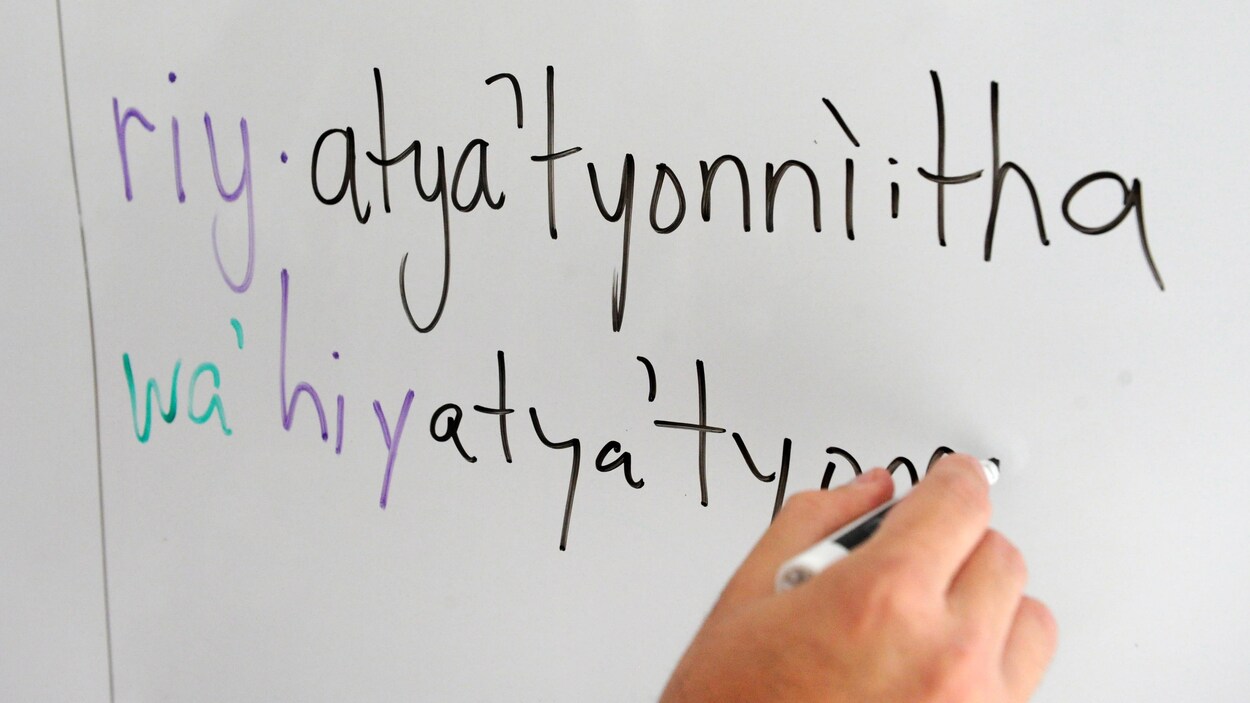 riy·atya'tyonnì:tha
wa'hiyatya'tyon